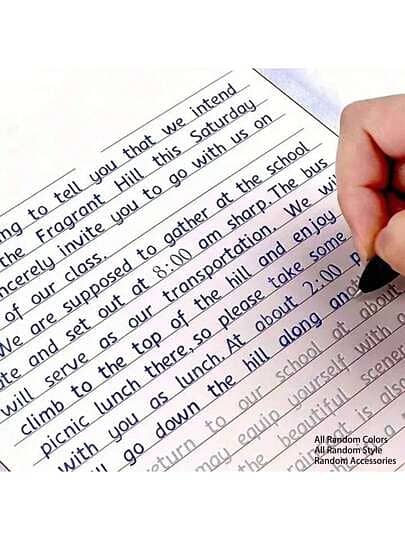 to tell you that we intend
the Fragrant Hill this Saturday
invite you to go with us on
of our class.
We are supposed to gather at the school
and set out at 8:00 am sharp. The bus
will serve as our transportation. We
climb to the top of the hill and enjoy
picnic lunch there, so please take some
with you as lunch. At about 2:00 p
go down the hill along and
return to our school at about
may equip yourself with a
the beautiful
is also
All Random Colors
All Random Style
Random Accessories